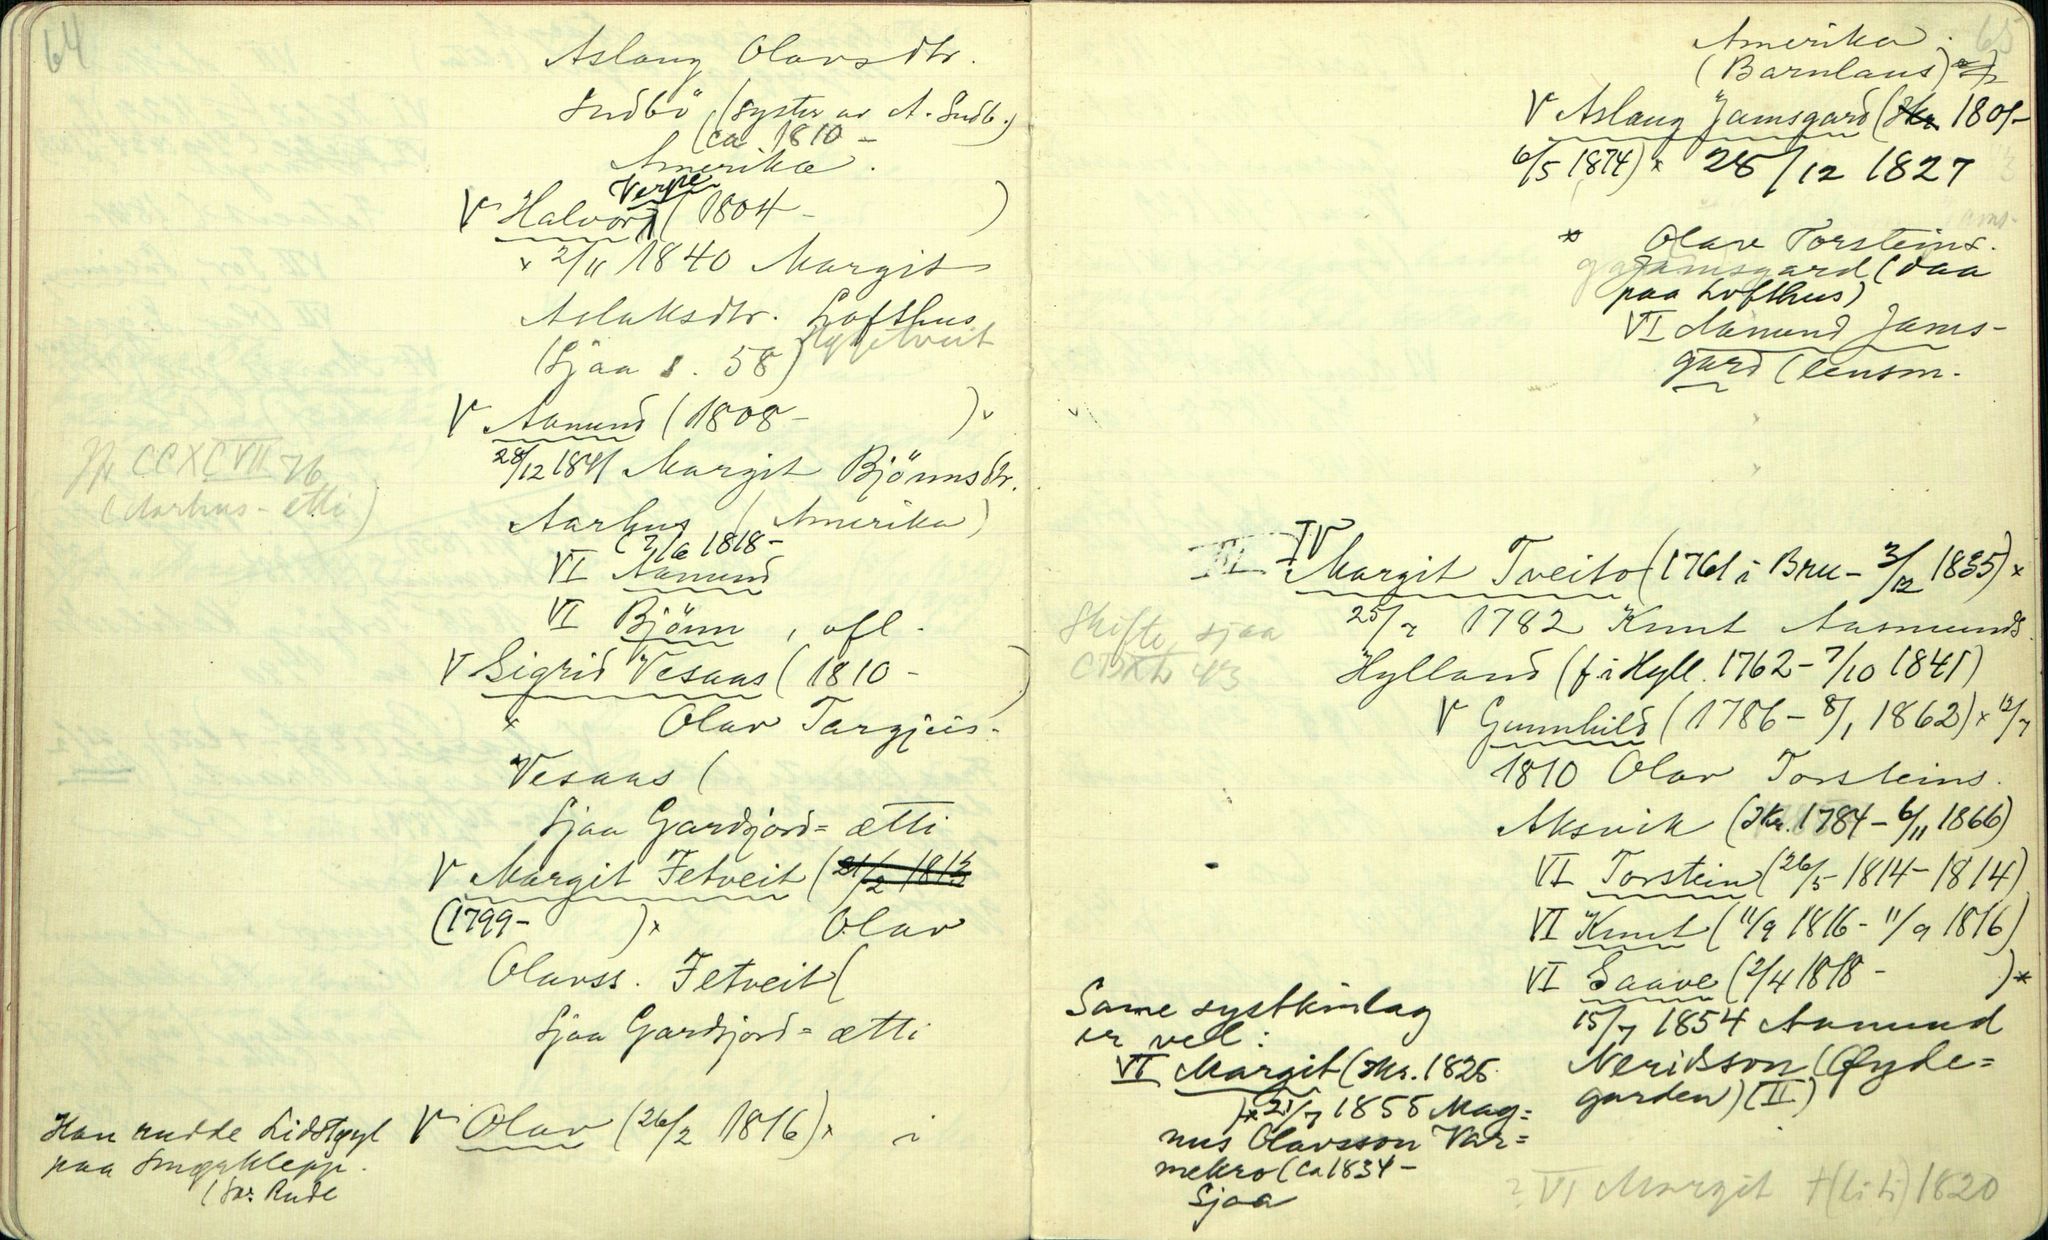 64
Aslaug Olavsdtr.
Sudbö (syster av A. Sudb.)
(ca 1810 -
Amerika.
V Halvor Verpe (1804 - )
x 2/11 1840 Margit
Aslaksdtr. Lofthus
(Sjaa s. 58)
V Aamund (1808 - ) x
28/12 1841 Margit Björnsdtr.
CCXCVII 76
(Aarhus-ætti)
Aarhus (Amerika)
1818 -
VI Aamund
VI Björn, ofl.
V Sigrid Vesaas (1810 - )
x Olav Targjeis-
Vesaas (
Sjaa Gardsjord= ætti
V Margit Fetveit (21/2 1813
(1799 - ) x Olav
Olavss. Fetveit (
Sjaa Gardsjord= ætti
V Olav (26/2 1816) x i
Han rudde Lidstøyl
paa
Rude
65
Amerika.
(Barnlaus)
V Aslaug Jamsgard (Skr 1801-
6/5 1874) x 28/12 1827
x Olav Torsteins.
Jamsgard (daa
paa Lofthus)
VI Aamund Jams-
gard (lensm.
III IV
Margit Tveito (1761 i Bru - 3/12 1835) x
25/7 1782 Knut Aasmunds.
Skifte sjaa
43
Hylland (f. i Hyll. 1762 - 7/10 1841)
V Gunnhild (1786 - 8/1 1862) x 12/7
1810 Olav Torsteins.
Aksvik (Skr. 1784 - 6/11 1866)
VI Torstein (26/5 1814 - 1814)
VI Knut (11/9 1816 - 11/9 1816)
VI Saave (2/4 1818 - ) x
15/7 1854 Aamund
Neridsson (Øyde=
garden) (II)
Same systkinlag
er vel:
VI Margit (Skr. 1825
) x 21/7 1855 Mag=
nus Olavsson Var=
mekro (ca 1834 -
Sjaa
? VI Margit † (liti) 1820